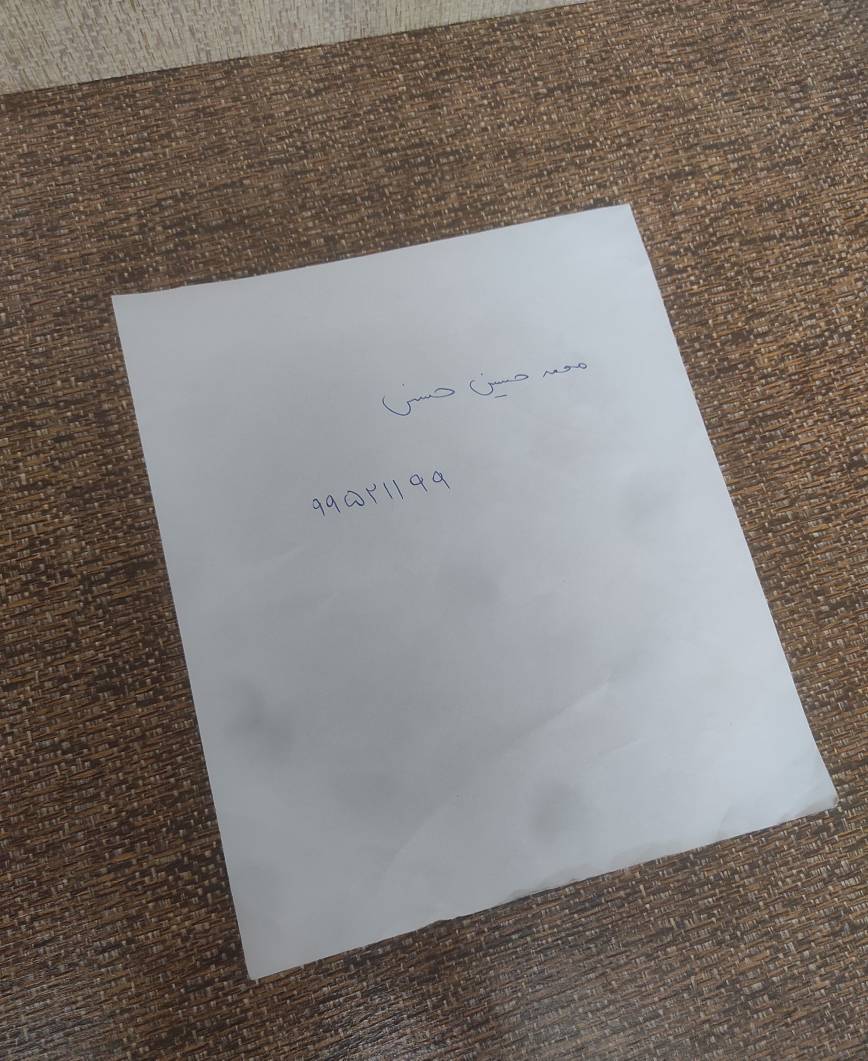 محمد حسین حسنی
۹۹۵۲۱۱۹۹